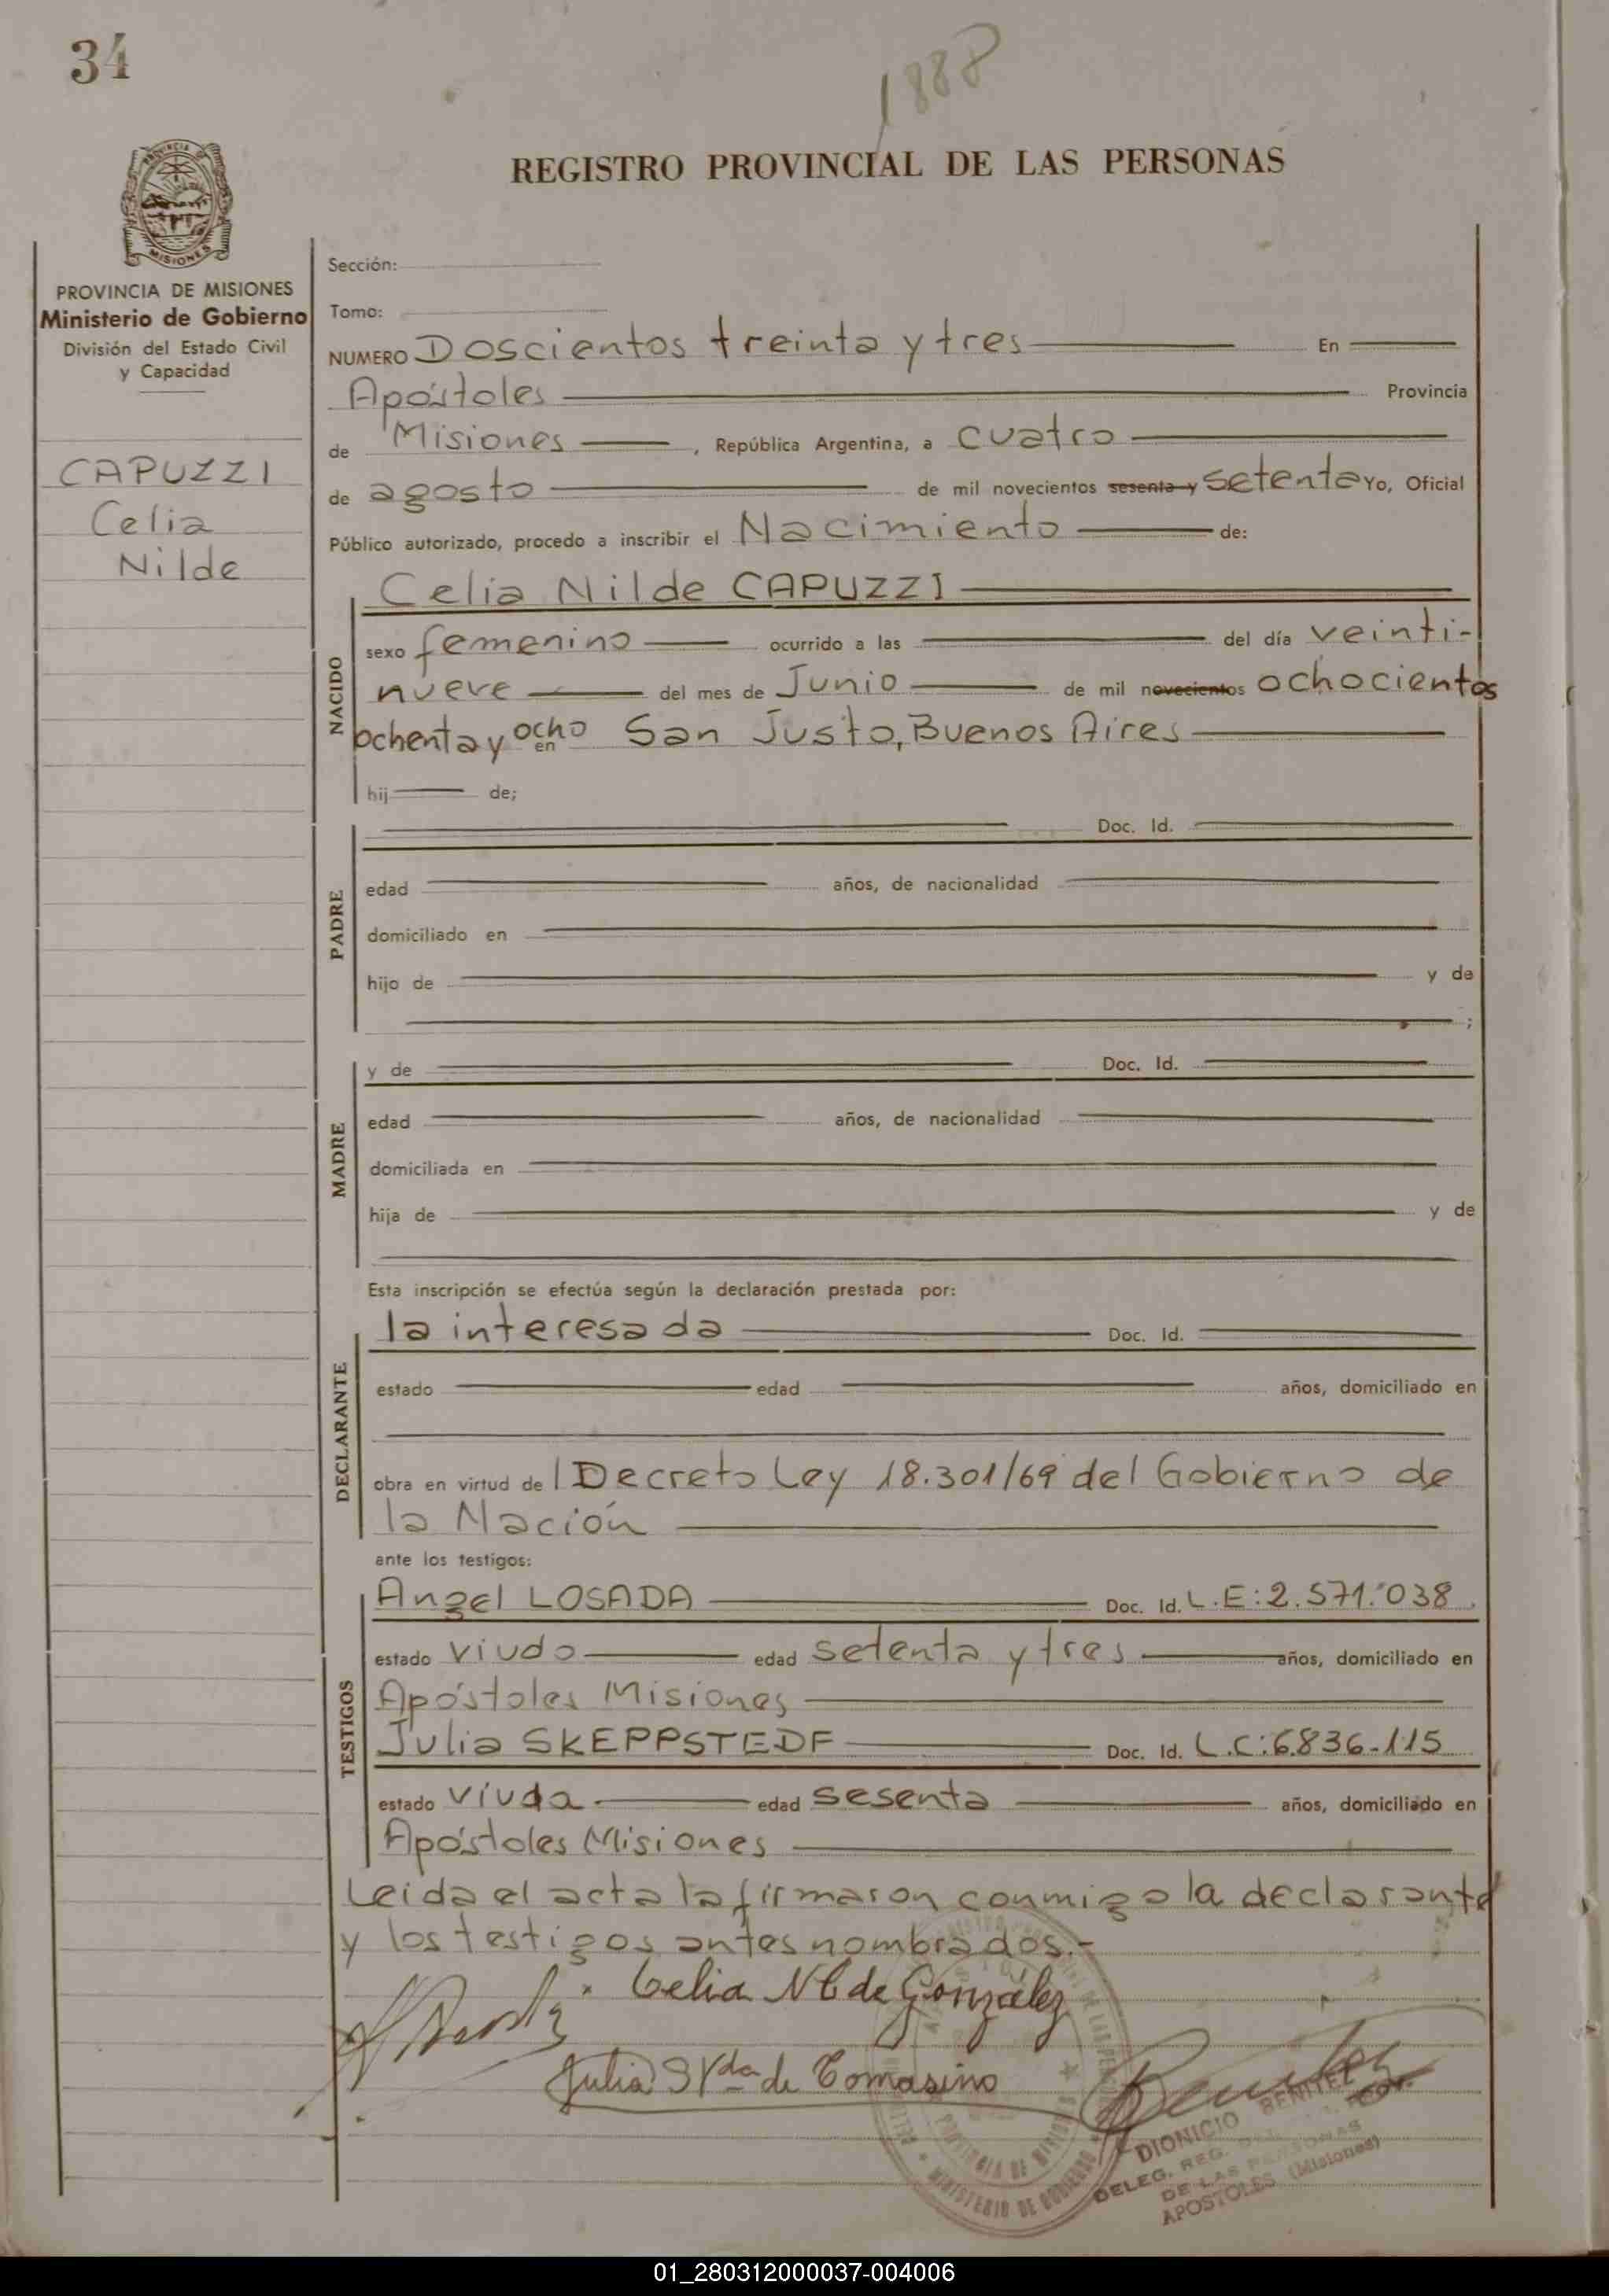 34
1888
REGISTRO PROVINCIAL DE LAS PERSONAS
PROVINCIA DE
MISIONES
PROVINCIA DE MISIONES
Ministerio de Gobierno
División del Estado Civil
y Capacidad
CAPUZZI
Celia
Nilde
Sección:
Tomo:
NUMERO Doscientos treinta y tres En
Apóstoles Provincia
de Misiones, República Argentina, a cuatro
de agosto de mil novecientos sesenta y setenta Yo, Oficial
Público autorizado, procedo a inscribir el Nacimiento de:
NACIDO
Celia Nilde CAPUZZI
sexo femenino ocurrido a las del día veinti-
nueve del mes de Junio de mil novecientos ochocientos
ochenta y ocho en San Justo, Buenos Aires
hij de;
PADRE
Doc. Id.
edad años, de nacionalidad
domiciliado en
hijo de y de
;
MADRE
y de Doc. Id.
edad años, de nacionalidad
domiciliada en
hija de y de
Esta inscripción se efectúa según la declaración prestada por:
DECLARANTE
la interesada Doc. Id.
estado edad años, domiciliado en
obra en virtud de l Decreto Ley 18.301/69 del Gobierno de
la Nación
ante los testigos:
TESTIGOS
Angel LOSADA Doc. Id. L.E:2.571.038
estado viudo edad setenta y tres años, domiciliado en
Apóstoles Misiones
Julia SKEPPSTEDF Doc. Id. L.C:6.836-115
estado viuda edad sesenta años, domiciliado en
Apóstoles Misiones
Leida el acta la firmaron conmigo la declarante
y los testigos antes nombrados.-
Celia N C de González
Julia S Vda de Tomasino
PROVINCIA DE MISIONES
MINISTERIO DE GOBIERNO
DIONICIO BENITEZ
DELEG. REG.
DE LAS PERSONAS
APOSTOLES (Misiones)
01_280312000037-004006